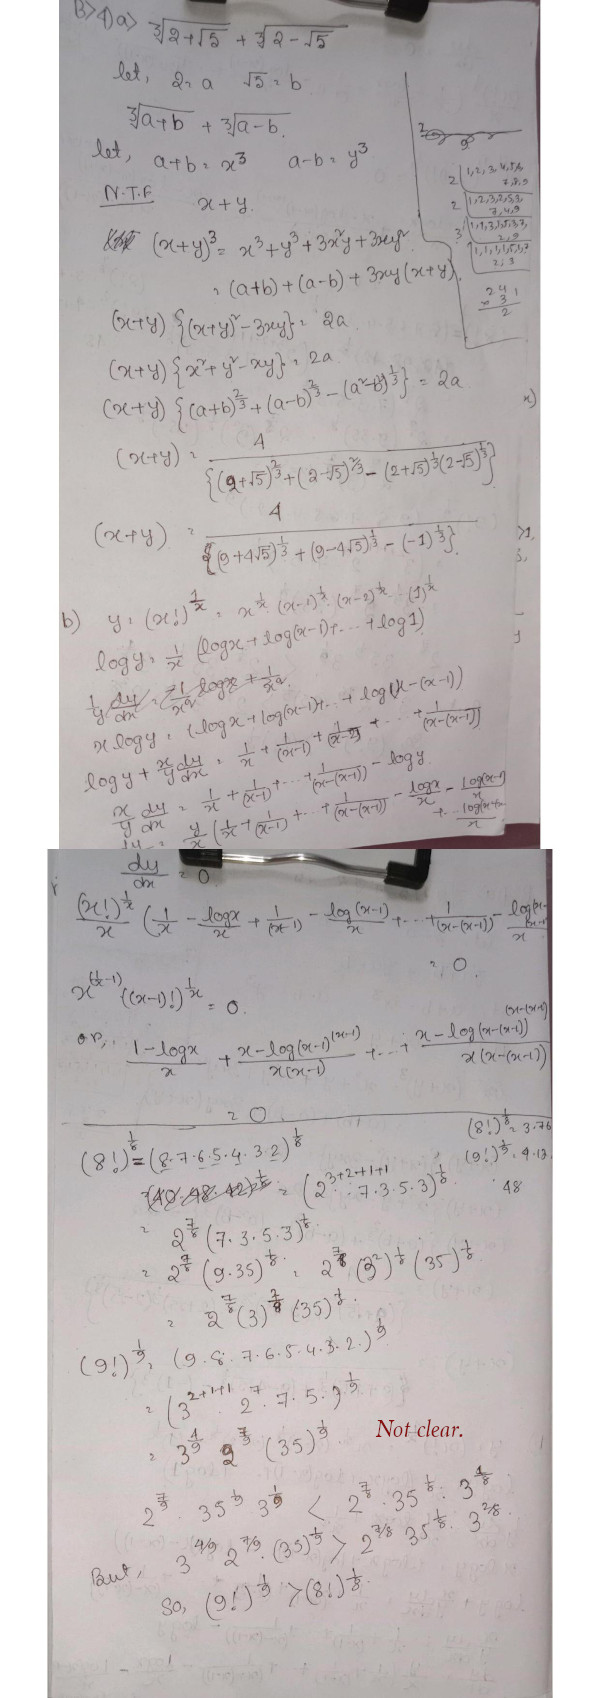 B> 4) a> ∛(2+√5) + ∛(2-√5)
let, 2=a √5=b
∛(a+b) + ∛(a-b).
let, a+b = x³ a-b = y³
N.T.F x+y.
(x+y)³ = x³+y³+3x²y+3xy²
= (a+b)+(a-b)+3xy(x+y).
(x+y){(x+y)²-3xy} = 2a.
(x+y){x²+y²-xy} = 2a.
(x+y){(a+b)^(2/3)+(a-b)^(2/3)-(a²-b²)^(1/3)} = 2a.
(x+y) = 4/{(2+√5)^(2/3)+(2-√5)^(2/3)-(2+√5)^(1/3)(2-√5)^(1/3)}
(x+y) = 4/{(9+4√5)^(1/3)+(9-4√5)^(1/3)-(-1)^(1/3)}
2 | 1, 2, 3, 4, 5, 6, 7, 8, 9
2 | 1, 2, 3, 2, 5, 3, 7, 4, 9
3 | 1, 1, 3, 1, 5, 3, 7, 2, 9
1, 1, 1, 1, 5, 1, 7, 2, 3
b) y = (x!)^(1/x) = x^(1/x) · (x-1)^(1/x) · (x-2)^(1/x) ·· (1)^(1/x)
log y = 1/x (log x + log(x-1)+...+ log 1)
1/y dy/dx = -1/x² log x + 1/x².
x log y = (log x + log(x-1)+...+ log(x-(x-1))
log y + x/y dy/dx = 1/x + 1/(x-1) + 1/(x-2) +...+ 1/(x-(x-1))
x/y dy/dx = 1/x + 1/(x-1) +...+ 1/(x-(x-1)) - log y
= y/x (1/x + 1/(x-1) +...+ 1/(x-(x-1)) - log x/x - log(x-1)/x
dy/dx = 0.
(x!)^(1/x)/x (1/x - log x/x + 1/(x-1) - log(x-1)/x +...+ 1/(x-(x-1)) -
= 0.
x^(1/x-1) ((x-1)!)^(1/x) = 0.
or, (1-log x)/x + (x-log(x-1)^(x-1))/(x(x-1)) +...+ (x-log(x-(x-1))^(x-(x-1)))/(x(x-(x-1)))
= 0.
(8!)^(1/8) = (8·7·6·5·4·3·2)^(1/8)
(8!)^(1/8) = 3.76
(9!)^(1/9) = 4.12
48
= (2^(3+2+1+1) · 7·3·5·3)^(1/8)
= 2^(7/8) (7·3·5·3)^(1/8)
= 2^(7/8) (9·35)^(1/8) = 2^(7/8) (3²)^(1/8) (35)^(1/8)
= 2^(7/8) (3)^(2/8) (35)^(1/8)
(9!)^(1/9) = (9·8·7·6·5·4·3·2·)^(1/9)
= (3^(2+1+1) · 2^7 · 7·5·)^(1/9)
Not clear.
= 3^(4/9) 2^(7/9) (35)^(1/9)
2^(7/9) · 35^(1/9) 3^(1/9) < 2^(7/8) · 35^(1/8) · 3^(4/8)
But, 3^(4/9) 2^(7/9) · (35)^(1/9) > 2^(7/8) 35^(1/8) · 3^(2/8).
So, (9!)^(1/9) > (8!)^(1/8).